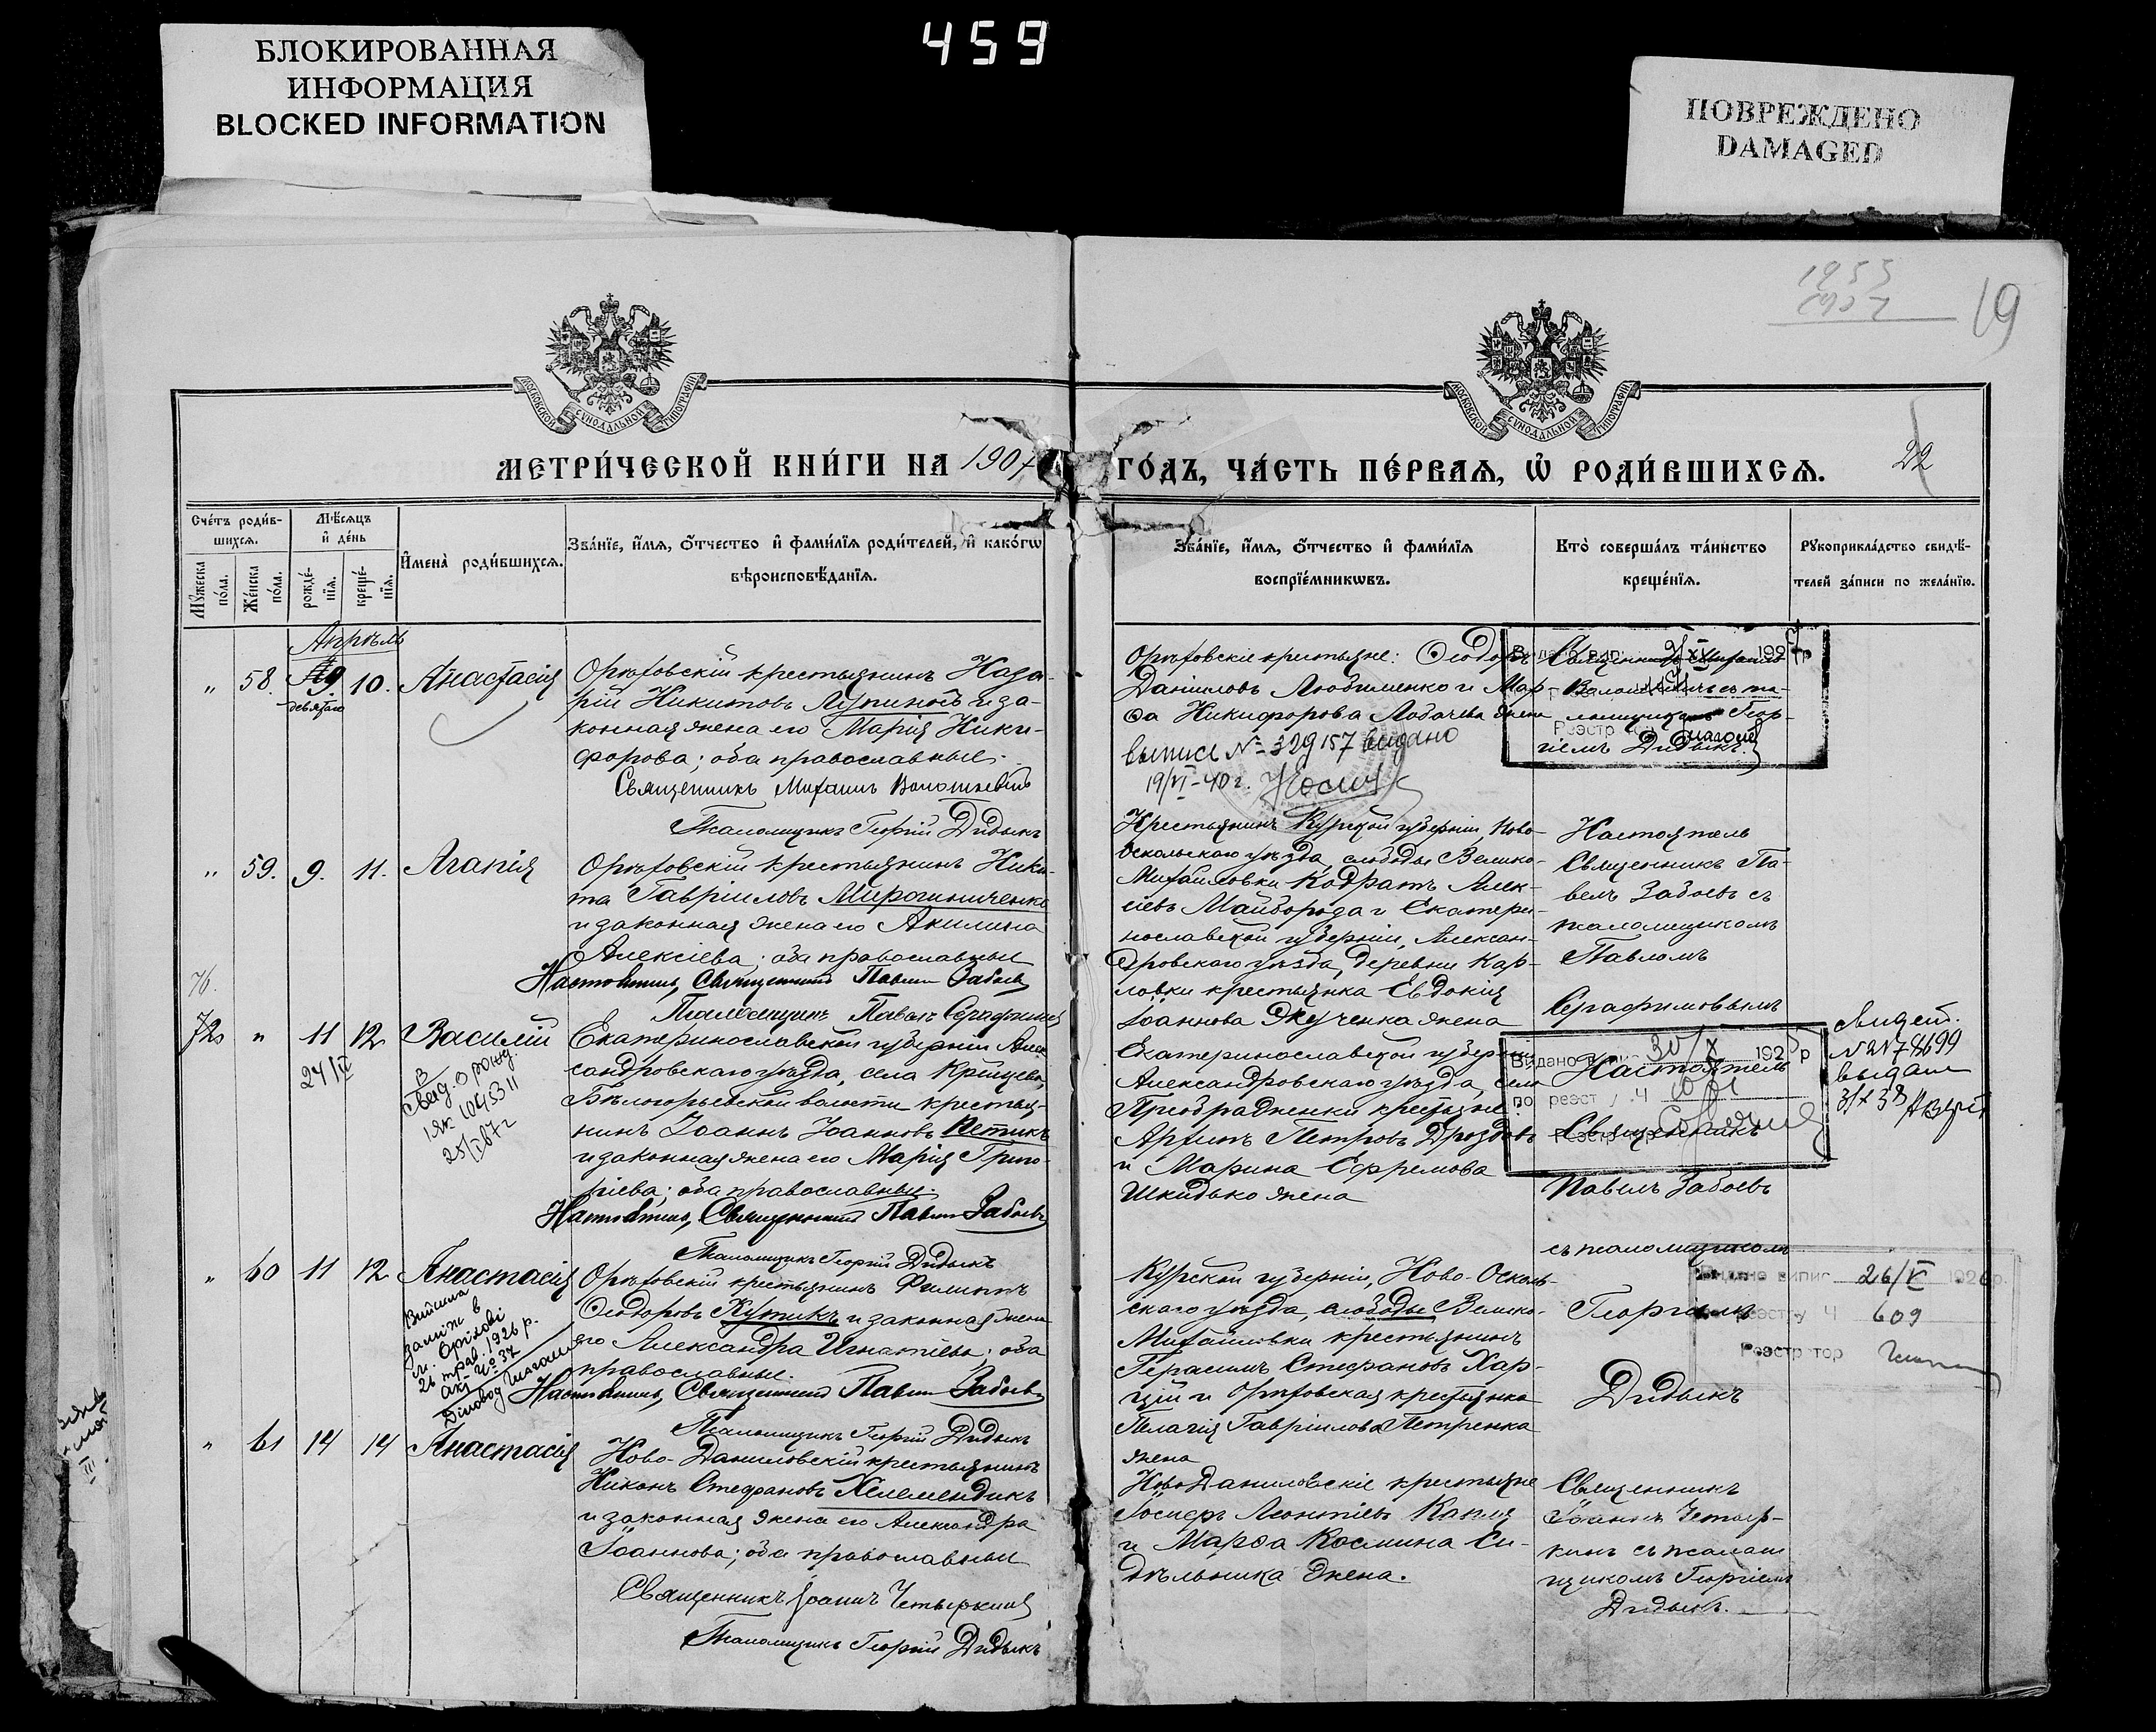 БЛОКИРОВАННАЯ
ИНФОРМАЦИЯ
BLOCKED INFORMATION
459
ПОВРЕЖДЕНО
DAMAGED
19
МОСКОВСКОЙ СѴНОДАЛЬНОЙ ТИПОГРАФІИ
МОСКОВСКОЙ СѴНОДАЛЬНОЙ ТИПОГРАФІИ
МЕТРИ́ЧЕСКОЙ КНИ́ГИ НА 1907
ГО́ДЪ, ЧА́СТЬ ПЕ́РВАѦ, Ѡ РОДИ́ВШИХСѦ.
22
Сче́тъ роди́в-
шихсѧ.
Мꙋ́жеска по́ла.
Же́нска по́ла.
Мѣ́сѧцъ
и҆ де́нь
рожде́-
нїѧ.
креще́-
нїѧ.
И҆мена̀ роди́вшихсѧ.
Зва́нїе, и҆́мѧ, ѻ҆́тчество и҆ фами́лїѧ роди́телей, и҆ како́гѡ
вѣроисповѣ́данїѧ.
Зва́нїе, и҆́мѧ, ѻ҆́тчество и҆ фами́лїѧ
воспрїе́мникѡвъ.
Кто̀ соверша́лъ та́инство
креще́нїѧ.
Рꙋкоприкла́дство свидѣ́-
телей за́писи по жела́нїю.
Апрѣль
" 58. 9. 10. Анастасія
девятаго
Орѣховскій крестьянинъ Наза-
рій Никитовъ Лупиносъ и за-
конная жена его Марія Ники-
форова; оба православные.
Священникъ Михаилъ Волошкевичъ
Псаломщикъ Георгій Дидыкъ
Орѣховскіе крестьяне: Ѳеодоръ
Даніиловъ Любименко и Мар-
ѳа Никифорова Лобачева жена
выписъ № 329157 выдано
19/VI-40 г.
Священникъ Михаилъ
Волошкевичъ съ пса-
ломщикомъ Геор-
гіемъ Дидыкъ.
" 59. 9. 11. Агапія
Орѣховскій крестьянинъ Ники-
та Гавріиловъ Мирошниченко
и законная жена его Акилина
Алексіева; оба православные
Настоятель, Священникъ Павелъ Забоевъ
Псаломщикъ Павелъ Серафимовъ
Крестьянинъ Курской губерніи, Ново-
Оскольскаго уѣзда, слободы Велико-
Михайловки Кодратъ Алек-
сіевъ Майборода и Екатери-
нославской губерніи, Алексан-
дровскаго уѣзда, деревни Кар-
ловки крестьянка Евдокія
Іоаннова Якученка жена
Настоятель
Священникъ Па-
велъ Забоевъ съ
псаломщикомъ
Павломъ
Серафимовымъ
76.
72 " 11 12 Василій
24/IV
В
свид. о рожд.
Екатеринославской губерніи Алек-
сандровскаго уѣзда, села
Бѣлогорьевской волости крестья-
нинъ Іоаннъ Іоанновъ Петикъ
и законная жена его Марія Григо-
ріева; оба православные.
Настоятель, Священникъ Павелъ Забоевъ
Псаломщикъ Георгій Дидыкъ
Екатеринославской губерніи
Александровскаго уѣзда, села
Преображенки крестьяне:
Архипъ Петровъ Дроздовъ
и Марина Ефремова
Шкидько жена
Видано випис 30/X 1925 р
по реєстру ч
Настоятель
Священникъ
Павелъ Забоевъ
съ псаломщикомъ
Георгіемъ
Дидыкъ
№ 278699
выдан
" 60 11 12 Анастасія
Вийшла
заміж в
м. Оріхові
26 трав. 1926 р.
акт № 37
Діловод
Орѣховскій крестьянинъ Филиппъ
Ѳеодоровъ Кутикъ и законная жена
его Александра Игнатіева; оба
православные.
Настоятель, Священникъ Павелъ Забоевъ
Псаломщикъ Георгій Дидыкъ
Курской губерніи, Ново-Осколь-
скаго уѣзда, слободы Велико-
Михайловки крестьянинъ
Герасимъ Стефановъ Хар-
цій и Орѣховская крестьянка
Пелагія Гавріилова Петренка
жена
Видано випис 26/V 1926 р.
реєстру Ч 609
Реєстратор
" 61 14 14 Анастасія
Ново-Даниловскій крестьянинъ
Никонъ Стефановъ Келемендикъ
и законная жена его Александра
Іоаннова; оба православные
Священникъ Іоаннъ Четыркинъ
Псаломщикъ Георгій Дидыкъ
Ново-Даниловскіе крестьяне
Іосифъ Леонтіевъ Капля
и Марѳа Космина Си-
дѣльника жена.
Священникъ
Іоаннъ Четыр-
кинъ съ псалом
щикомъ Георгіемъ
Дидыкъ.